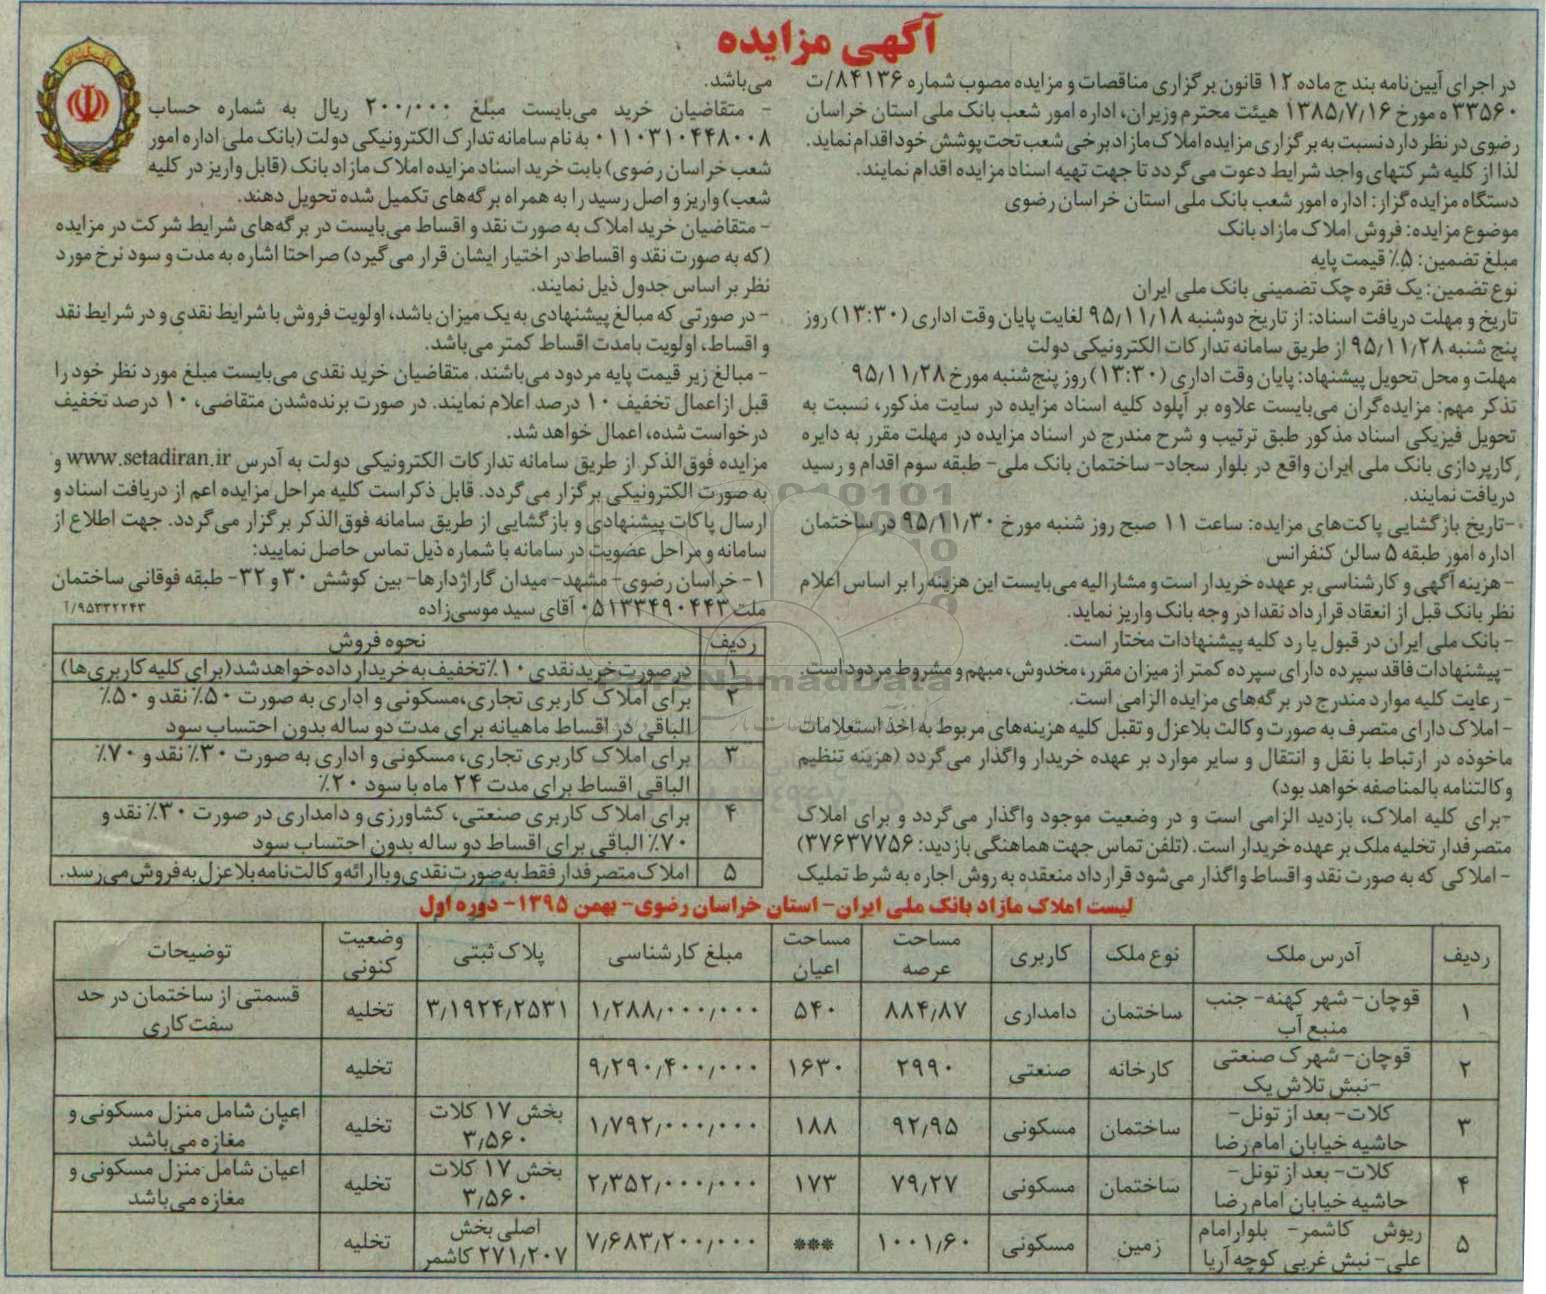 آگهی مزایده
در اجرای آیین‌نامه بند ج ماده ۱۲ قانون برگزاری مناقصات و مزایده مصوب شماره ۸۴۱۳۶/ت
۳۳۵۶۰ ه مورخ ۱۳۸۵/۷/۱۶ هیئت محترم وزیران، اداره امور شعب بانک ملی استان خراسان
رضوی در نظر دارد نسبت به برگزاری مزایده املاک مازاد برخی شعب تحت پوشش خود اقدام نماید.
لذا از کلیه شرکتهای واجد شرایط دعوت می‌گردد تا جهت تهیه اسناد مزایده اقدام نمایند.
دستگاه مزایده‌گزار: اداره امور شعب بانک ملی استان خراسان رضوی
موضوع مزایده: فروش املاک مازاد بانک
مبلغ تضمین: ۵٪ قیمت پایه
نوع تضمین: یک فقره چک تضمینی بانک ملی ایران
تاریخ و مهلت دریافت اسناد: از تاریخ دوشنبه ۹۵/۱۱/۱۸ لغایت پایان وقت اداری (۱۳:۳۰) روز
پنج شنبه ۹۵/۱۱/۲۸ از طریق سامانه تدارکات الکترونیکی دولت
مهلت و محل تحویل پیشنهاد: پایان وقت اداری (۱۳:۳۰) روز پنج‌شنبه مورخ ۹۵/۱۱/۲۸
تذکر مهم: مزایده‌گران می‌بایست علاوه بر آپلود کلیه اسناد مزایده در سایت مذکور، نسبت به
تحویل فیزیکی اسناد مذکور طبق ترتیب و شرح مندرج در اسناد مزایده در مهلت مقرر به دایره
کارپردازی بانک ملی ایران واقع در بلوار سجاد- ساختمان بانک ملی- طبقه سوم اقدام و رسید
دریافت نمایند.
-تاریخ بازگشایی پاکت‌های مزایده: ساعت ۱۱ صبح روز شنبه مورخ ۹۵/۱۱/۳۰ در ساختمان
اداره امور طبقه ۵ سالن کنفرانس
- هزینه آگهی و کارشناسی بر عهده خریدار است و مشارالیه می‌بایست این هزینه را بر اساس اعلام
نظر بانک قبل از انعقاد قرارداد نقدا در وجه بانک واریز نماید.
- بانک ملی ایران در قبول یا رد کلیه پیشنهادات مختار است.
- پیشنهادات فاقد سپرده دارای سپرده کمتر از میزان مقرر، مخدوش، مبهم و مشروط مردود است.
- رعایت کلیه موارد مندرج در برگه‌های مزایده الزامی است.
- املاک دارای متصرف به صورت وکالت بلاعزل و تقبل کلیه هزینه‌های مربوط به اخذ استعلامات
ماخوذه در ارتباط با نقل و انتقال و سایر موارد بر عهده خریدار واگذار می‌گردد (هزینه تنظیم
وکالتنامه بالمناصفه خواهد بود)
-برای کلیه املاک، بازدید الزامی است و در وضعیت موجود واگذار می‌گردد و برای املاک
متصرفدار تخلیه ملک بر عهده خریدار است. (تلفن تماس جهت هماهنگی بازدید: ۳۷۶۳۷۷۵۶)
- املاکی که به صورت نقد و اقساط واگذار می‌شود قرارداد منعقده به روش اجاره به شرط تملیک
می‌باشد.
- متقاضیان خرید می‌بایست مبلغ ۲۰۰/۰۰۰ ریال به شماره حساب
۰۱۱۰۳۱۰۴۴۸۰۰۸ به نام سامانه تدارک الکترونیکی دولت (بانک ملی اداره امور
شعب خراسان رضوی) بابت خرید اسناد مزایده املاک مازاد بانک (قابل واریز در کلیه
شعب) واریز و اصل رسید را به همراه برگه‌های تکمیل شده تحویل دهند.
- متقاضیان خرید املاک به صورت نقد و اقساط می‌بایست در برگه‌های شرایط شرکت در مزایده
(که به صورت نقد و اقساط در اختیار ایشان قرار می‌گیرد) صراحتا اشاره به مدت و سود نرخ مورد
نظر بر اساس جدول ذیل نمایند.
- در صورتی که مبالغ پیشنهادی به یک میزان باشد، اولویت فروش با شرایط نقدی و در شرایط نقد
و اقساط، اولویت بامدت اقساط کمتر می‌باشد.
- مبالغ زیر قیمت پایه مردود می‌باشند. متقاضیان خرید نقدی می‌بایست مبلغ مورد نظر خود را
قبل از اعمال تخفیف ۱۰ درصد اعلام نمایند. در صورت برنده‌شدن متقاضی، ۱۰ درصد تخفیف
درخواست شده، اعمال خواهد شد.
مزایده فوق‌الذکر از طریق سامانه تدارکات الکترونیکی دولت به آدرس www.setadiran.ir و
به صورت الکترونیکی برگزار می‌گردد. قابل ذکر است کلیه مراحل مزایده اعم از دریافت اسناد و
ارسال پاکات پیشنهادی و بازگشایی از طریق سامانه فوق‌الذکر برگزار می‌گردد. جهت اطلاع از
سامانه و مراحل عضویت در سامانه با شماره ذیل تماس حاصل نمایید:
۱- خراسان رضوی- مشهد- میدان گاراژدارها- بین کوشش ۳۰ و ۳۲- طبقه فوقانی ساختمان
ملت ۰۵۱۳۳۴۹۰۴۴۳ آقای سید موسی‌زاده
۹۵۳۳۲۲۴۳/آ
ردیف نحوه فروش
۱ در صورت خرید نقدی ۱۰٪ تخفیف به خریدار داده خواهد شد (برای کلیه کاربری‌ها)
۲ برای املاک کاربری تجاری، مسکونی و اداری به صورت ۵۰٪ نقد و ۵۰٪
الباقی در اقساط ماهیانه برای مدت دو ساله بدون احتساب سود
۳ برای املاک کاربری تجاری، مسکونی و اداری به صورت ۳۰٪ نقد و ۷۰٪
الباقی اقساط برای مدت ۲۴ ماه با سود ۲۰٪
۴ برای املاک کاربری صنعتی، کشاورزی و دامداری در صورت ۳۰٪ نقد و
۷۰٪ الباقی برای اقساط دو ساله بدون احتساب سود
۵ املاک متصرفدار فقط به صورت نقدی و با ارائه وکالت‌نامه بلاعزل به فروش می‌رسد.
لیست املاک مازاد بانک ملی ایران- استان خراسان رضوی- بهمن ۱۳۹۵- دوره اول
ردیف آدرس ملک نوع ملک کاربری مساحت عرصه مساحت اعیان مبلغ کارشناسی پلاک ثبتی وضعیت کنونی توضیحات
۱ قوچان- شهر کهنه- جنب منبع آب ساختمان دامداری ۸۸۴/۸۷ ۵۴۰ ۱/۲۸۸/۰۰۰/۰۰۰ ۳/۱۹۲۴/۲۵۳۱ تخلیه قسمتی از ساختمان در حد سفت‌کاری
۲ قوچان- شهرک صنعتی -نبش تلاش یک کارخانه صنعتی ۲۹۹۰ ۱۶۳۰ ۹/۲۹۰/۴۰۰/۰۰۰ تخلیه
۳ کلات- بعد از تونل- حاشیه خیابان امام رضا ساختمان مسکونی ۹۲/۹۵ ۱۸۸ ۱/۷۹۲/۰۰۰/۰۰۰ بخش ۱۷ کلات ۳/۵۶۰ تخلیه اعیان شامل منزل مسکونی و مغازه می‌باشد
۴ کلات- بعد از تونل- حاشیه خیابان امام رضا ساختمان مسکونی ۷۹/۲۷ ۱۷۳ ۲/۳۵۲/۰۰۰/۰۰۰ بخش ۱۷ کلات ۳/۵۶۰ تخلیه اعیان شامل منزل مسکونی و مغازه می‌باشد
۵ ریوش کاشمر- بلوار امام علی- نبش غربی کوچه آریا زمین مسکونی ۱۰۰۱/۶۰ *** ۷/۶۸۳/۲۰۰/۰۰۰ اصلی بخش ۲۷۱/۲۰۷ کاشمر تخلیه
ParsNamadData